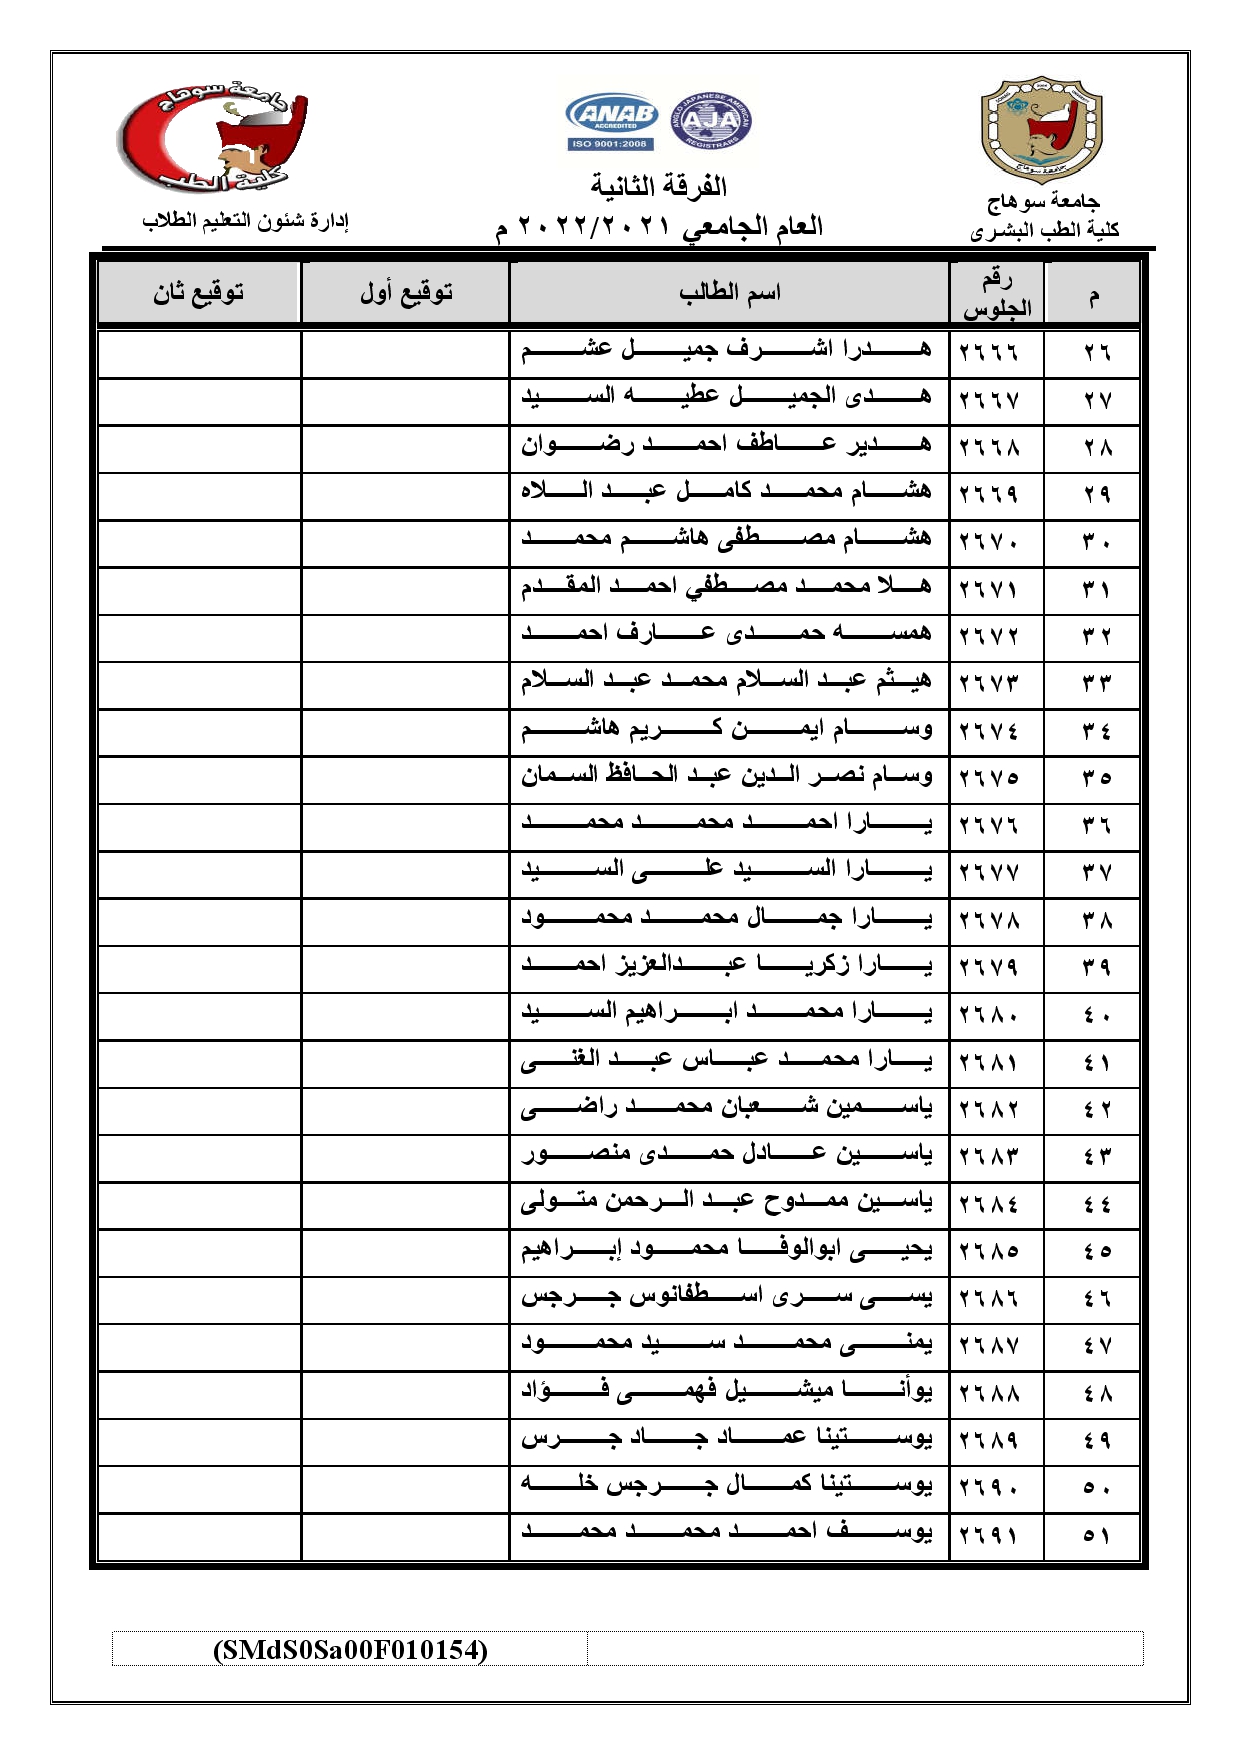 جامعة سوهاج
كلية الطب
ANAB
ACCREDITED
ISO 9001:2008
ANGLO JAPANESE AMERICAN
AJA
REGISTRARS
جامعة سوهاج
جامعة سوهاج
كلية الطب البشرى
الفرقة الثانية
العام الجامعي ٢٠٢٢/٢٠٢١ م
إدارة شئون التعليم الطلاب
م رقم الجلوس اسم الطالب توقيع أول توقيع ثان
٢٦ ٢٦٦٦ هدرا اشرف جميل عشم
٢٧ ٢٦٦٧ هدى الجميل عطيه السيد
٢٨ ٢٦٦٨ هدير عاطف احمد رضوان
٢٩ ٢٦٦٩ هشام محمد كامل عبد اللاه
٣٠ ٢٦٧٠ هشام مصطفى هاشم محمد
٣١ ٢٦٧١ هلا محمد مصطفي احمد المقدم
٣٢ ٢٦٧٢ همسه حمدى عارف احمد
٣٣ ٢٦٧٣ هيثم عبد السلام محمد عبد السلام
٣٤ ٢٦٧٤ وسام ايمن كريم هاشم
٣٥ ٢٦٧٥ وسام نصر الدين عبد الحافظ السمان
٣٦ ٢٦٧٦ يارا احمد محمد محمد
٣٧ ٢٦٧٧ يارا السيد على السيد
٣٨ ٢٦٧٨ يارا جمال محمد محمود
٣٩ ٢٦٧٩ يارا زكريا عبدالعزيز احمد
٤٠ ٢٦٨٠ يارا محمد ابراهيم السيد
٤١ ٢٦٨١ يارا محمد عباس عبد الغنى
٤٢ ٢٦٨٢ ياسمين شعبان محمد راضى
٤٣ ٢٦٨٣ ياسين عادل حمدى منصور
٤٤ ٢٦٨٤ ياسين ممدوح عبد الرحمن متولى
٤٥ ٢٦٨٥ يحيى ابوالوفا محمود إبراهيم
٤٦ ٢٦٨٦ يسى سرى اسطفانوس جرجس
٤٧ ٢٦٨٧ يمنى محمد سيد محمود
٤٨ ٢٦٨٨ يوأنا ميشيل فهمى فؤاد
٤٩ ٢٦٨٩ يوستينا عماد جاد جرس
٥٠ ٢٦٩٠ يوستينا كمال جرجس خله
٥١ ٢٦٩١ يوسف احمد محمد محمد
(SMdS0Sa00F010154)